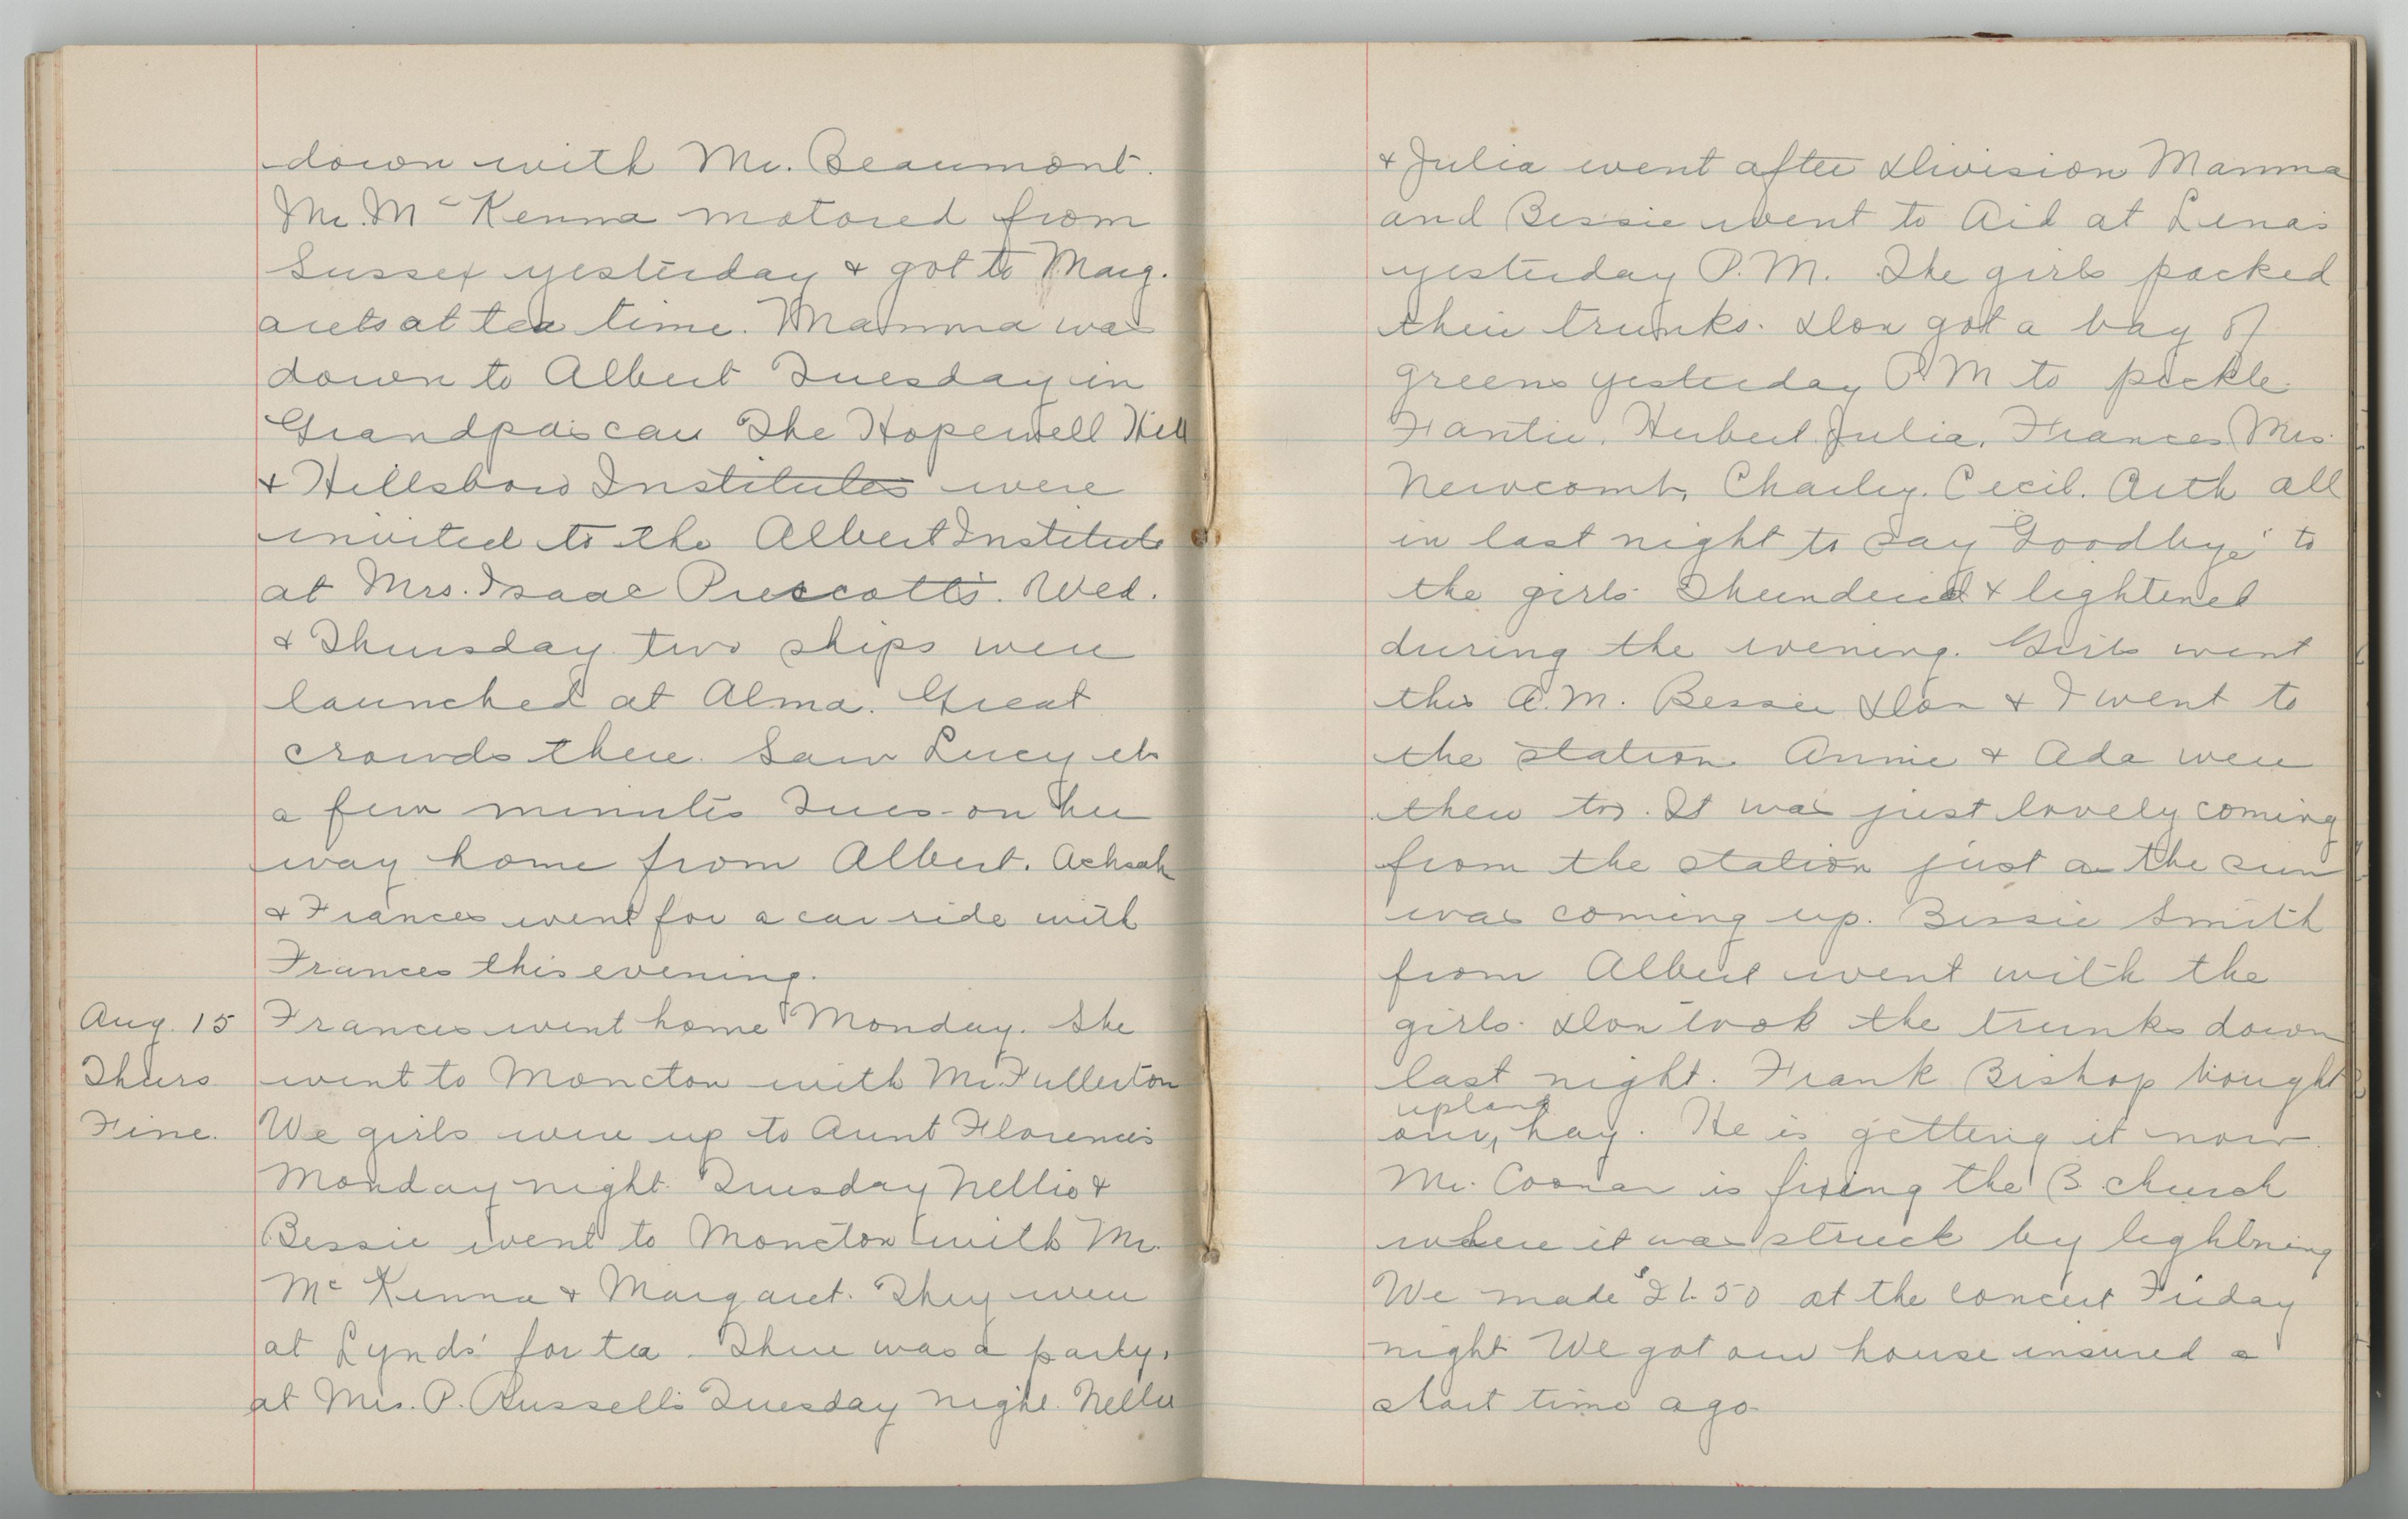 down with Mr. Beaumont.
Mr. McKenna motored from
Sussex yesterday & got to Marg-
arets at tea time. Mamma was
down to Albert Tuesday in
Grandpa's car The Hopewell Hill
& Hillsboro Institutes were
invited to the Albert Institute
at Mrs. Isaac Prescott's. Wed.
& Thursday two ships were
launched at Alma. Great
crowds there. Saw Lucy etc
a few minutes Tues. on her
way home from Albert. Achsah
& Frances went for a car ride with
Frances this evening.
Aug. 15 Frances went home Monday. She
Thurs. went to Moncton with Mr. Fullerton
Fine. We girls were up to Aunt Florence's
Monday night. Tuesday Nellie &
Bessie went to Moncton with Mr.
McKenna & Margaret. They were
at Lynds' for tea. There was a party
at Mrs. P. Russell's Tuesday night. Nellie
& Julia went after Division Mamma
and Bessie went to Aid at Lena's
yesterday P.M. The girls packed
their trunks. Don got a bag of
greens yesterday P.M to pickle.
Herbert Julia, Frances, Mrs.
Newcomb, Charley. Cecil. Arth all
in last night to say "Goodbye" to
the girls. Thundered & lightened
during the evening. Girls went
this A.M. Bessie Don & I went to
the station. Annie & Ada were
there too. It was just lovely coming
from the station just as the sun
was coming up. Bessie Smith
from Albert went with the
girls. Don took the trunks down
last night. Frank Bishop bought
our upland hay. He is getting it now.
Mr. Coonan is fixing the B. church
where it was struck by lightning
We made $21.50 at the concert Friday
night. We got our house insured a
short time ago.